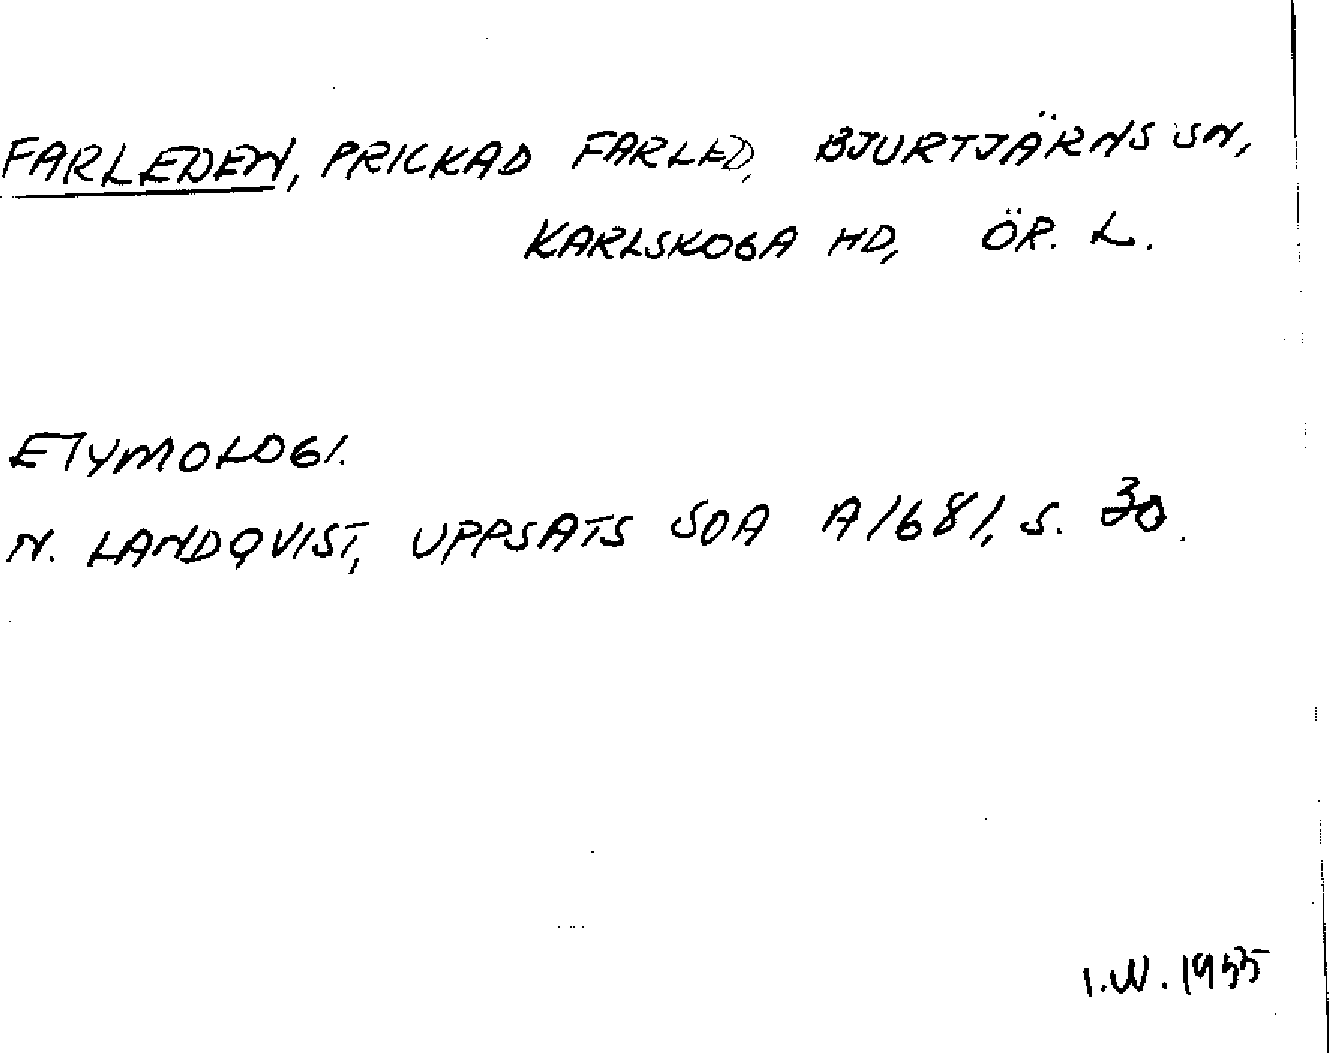 FARLEDEN, PRICKAD FARLED, BJURTJÄRNS SN,
KARLSKOGA HD, ÖR. L.
ETYMOLOGI.
N. LANDQVIST, UPPSATS SOA A1681, S. 30.
I.W. 1955